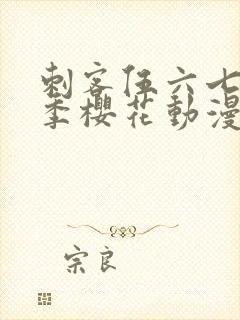 刺客伍六七
季櫻花動漫
宗良